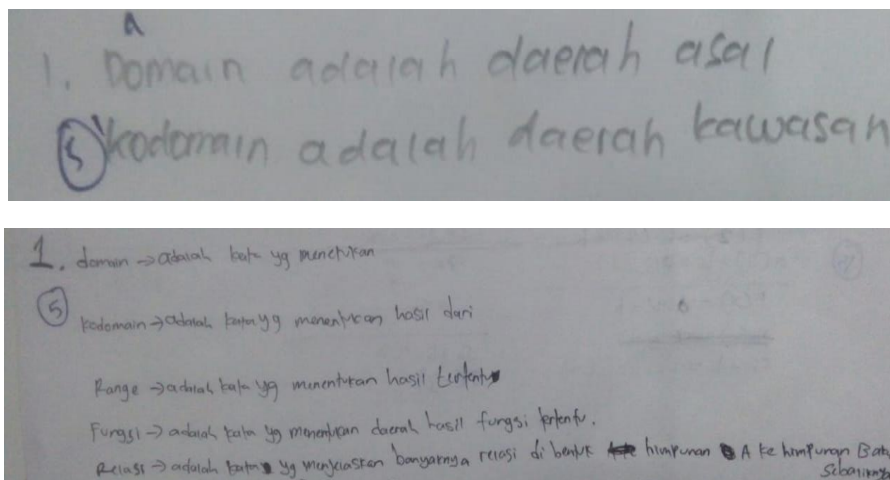 a
1. Domain adalah daerah asal
5 kodomain adalah daerah kawasan
1. domain → adalah kata yg menetukan
5
kodomain → adalah kata yg menentukan hasil dari
Range → adalah kata yg menentukan hasil tertentu
Fungsi → adalah kata yg menentukan daerah hasil fungsi tertentu.
Relasi → adalah kata yg menjelaskan banyaknya relasi di bentuk himpunan A ke himpunan B atau
Sebaliknya